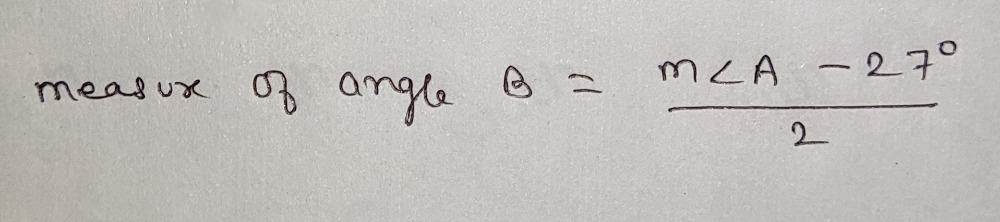 measure of angle B = m<A - 27°
2